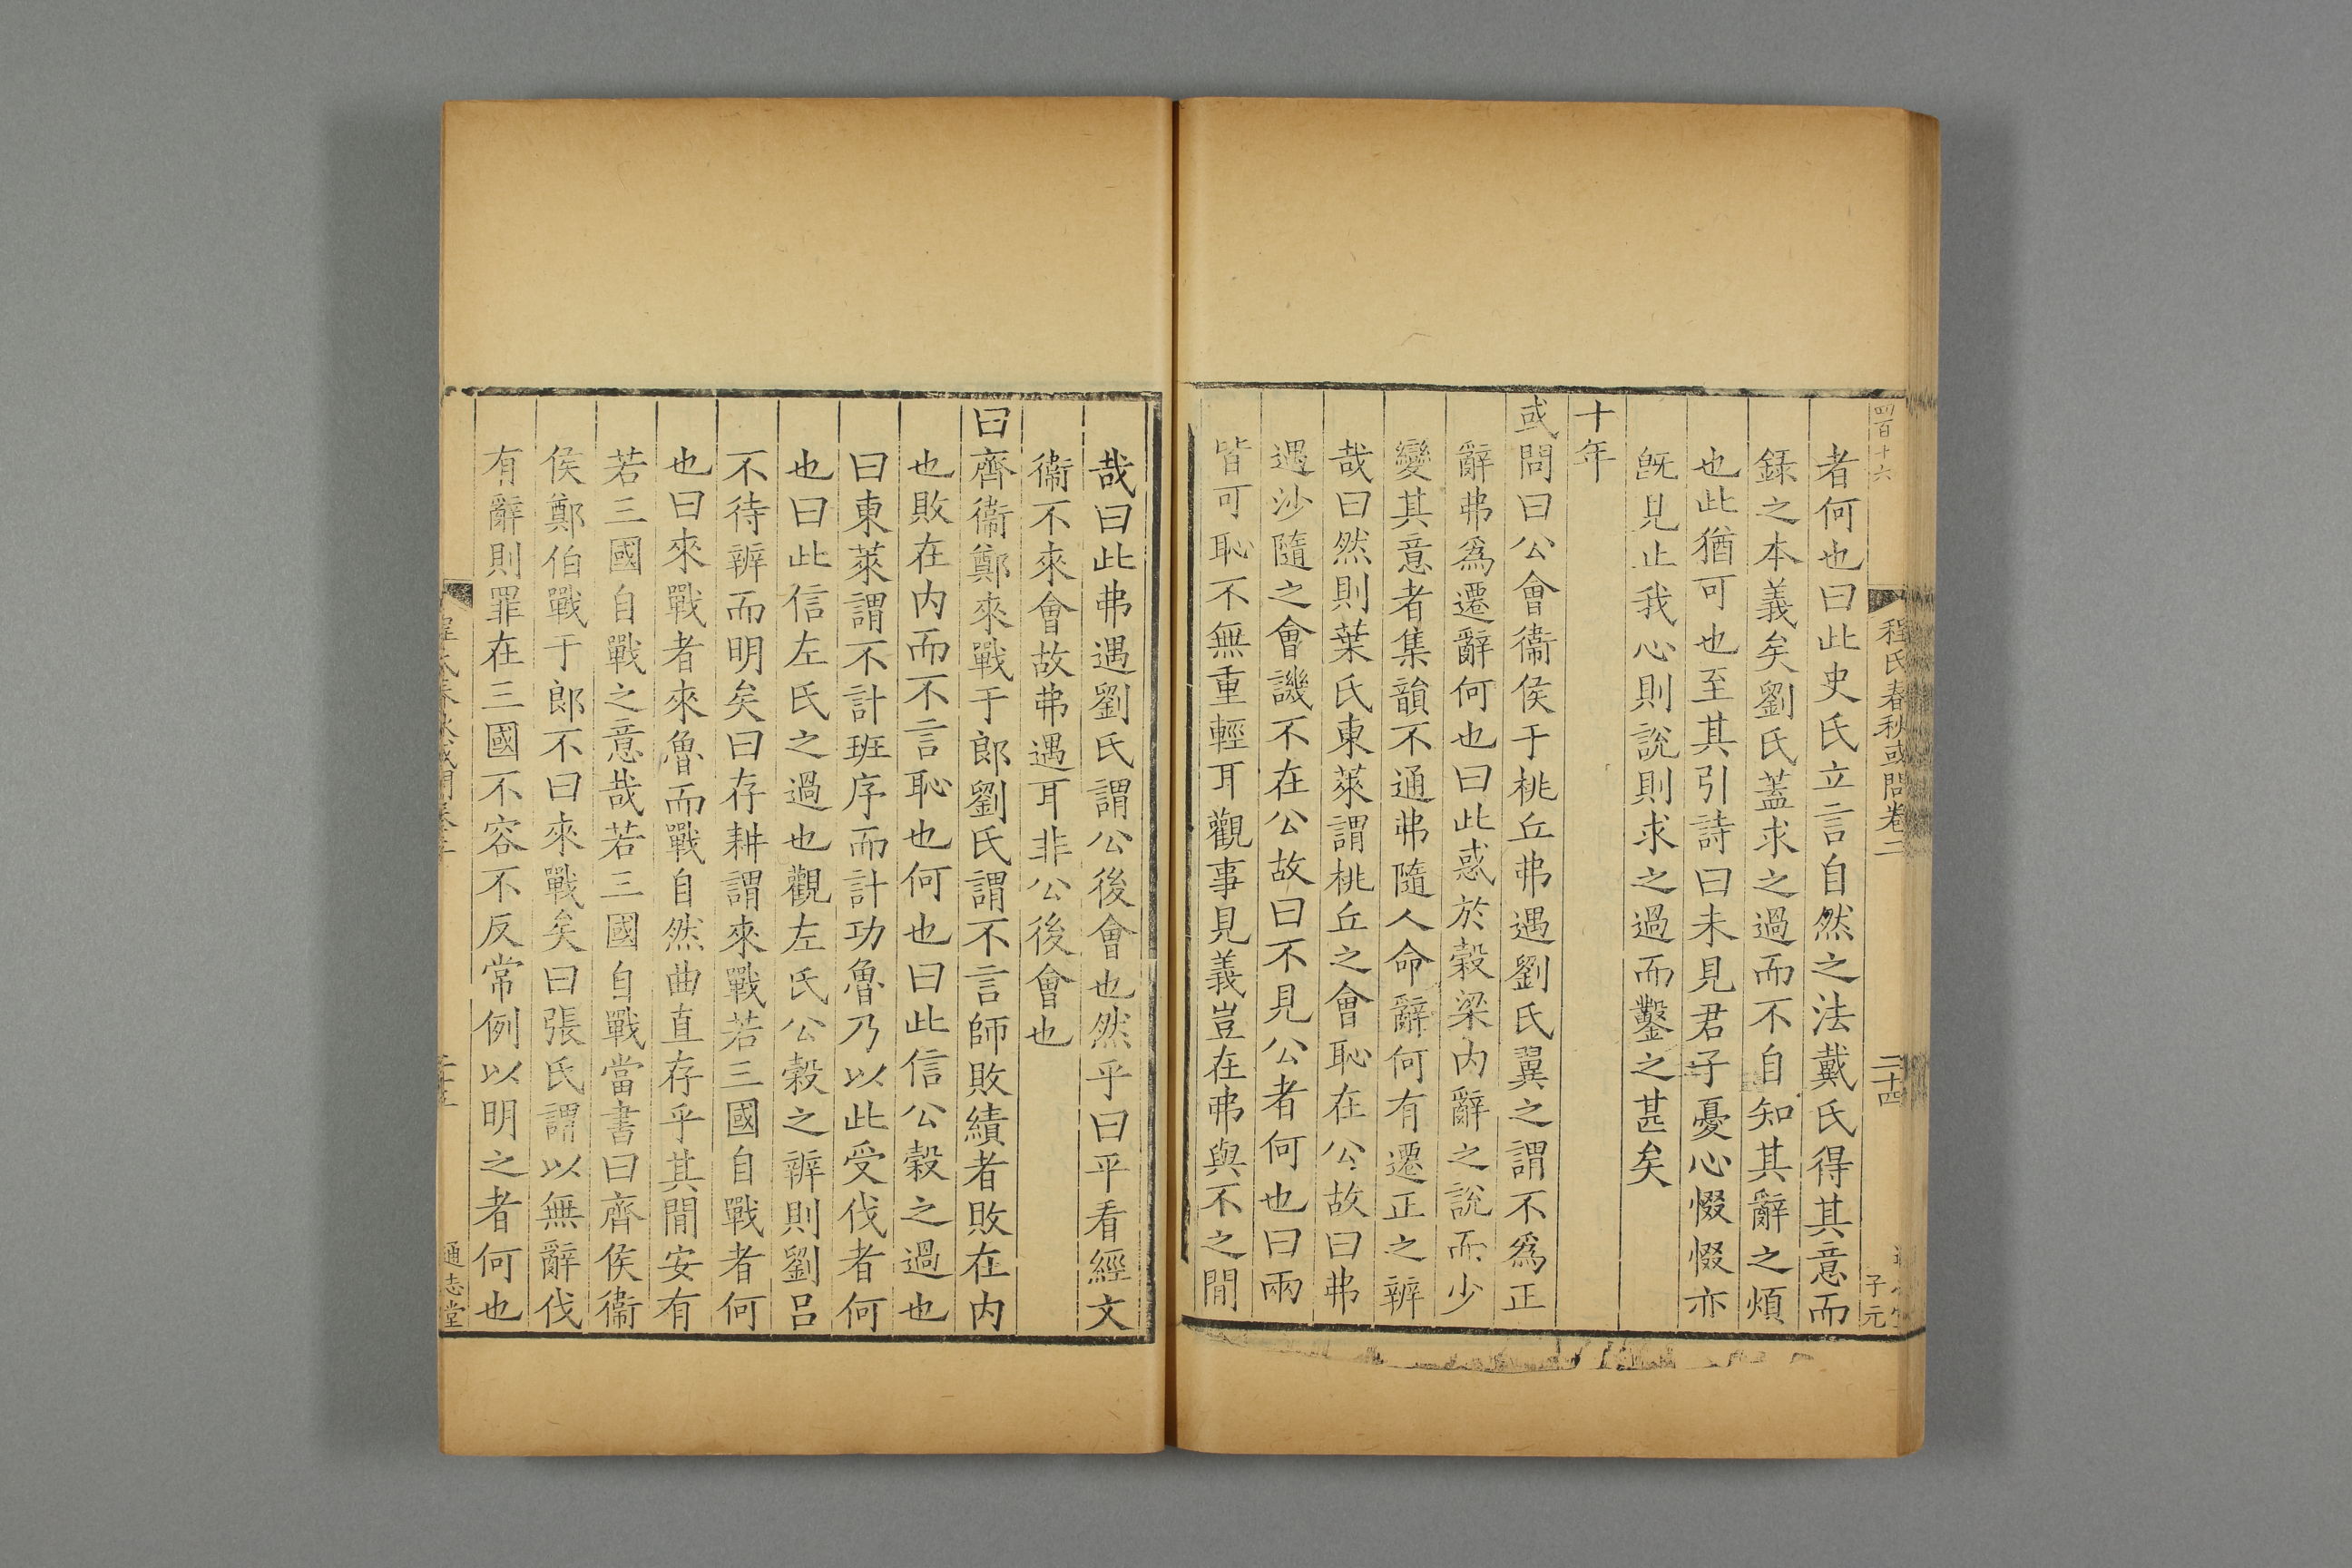 四百十六
程氏春秋或問卷二
二十四
子元
者何也曰此史氏立言自然之法戴氏得其意而
録之本義矣劉氏蓋求之過而不自知其辭之煩
也此猶可也至其引詩曰未見君子憂心惙惙亦
旣見止我心則說則求之過而鑿之甚矣
十年
或問曰公會衞侯于桃丘弗遇劉氏翼之謂不爲正
辭弗爲遷辭何也曰此惑於穀梁内辭之說而少
變其意者集韻不通弗隨人命辭何有遷正之辨
哉曰然則葉氏東萊謂桃丘之會恥在公故曰弗
遇沙隨之會譏不在公故曰不見公者何也曰兩
皆可恥不無重輕耳觀事見義豈在弗與不之閒
哉曰此弗遇劉氏謂公後會也然乎曰平看經文
衞不來會故弗遇耳非公後會也
曰齊衞鄭來戰于郎劉氏謂不言師敗績者敗在内
也敗在内而不言恥也何也曰此信公穀之過也
曰東萊謂不計班序而計功魯乃以此受伐者何
也曰此信左氏之過也觀左氏公穀之辨則劉呂
不待辨而明矣曰存耕謂來戰若三國自戰者何
也曰來戰者來魯而戰自然曲直存乎其閒安有
若三國自戰之意哉若三國自戰當書曰齊侯衞
侯鄭伯戰于郎不曰來戰矣曰張氏謂以無辭伐
有辭則罪在三國不容不反常例以明之者何也
通志堂